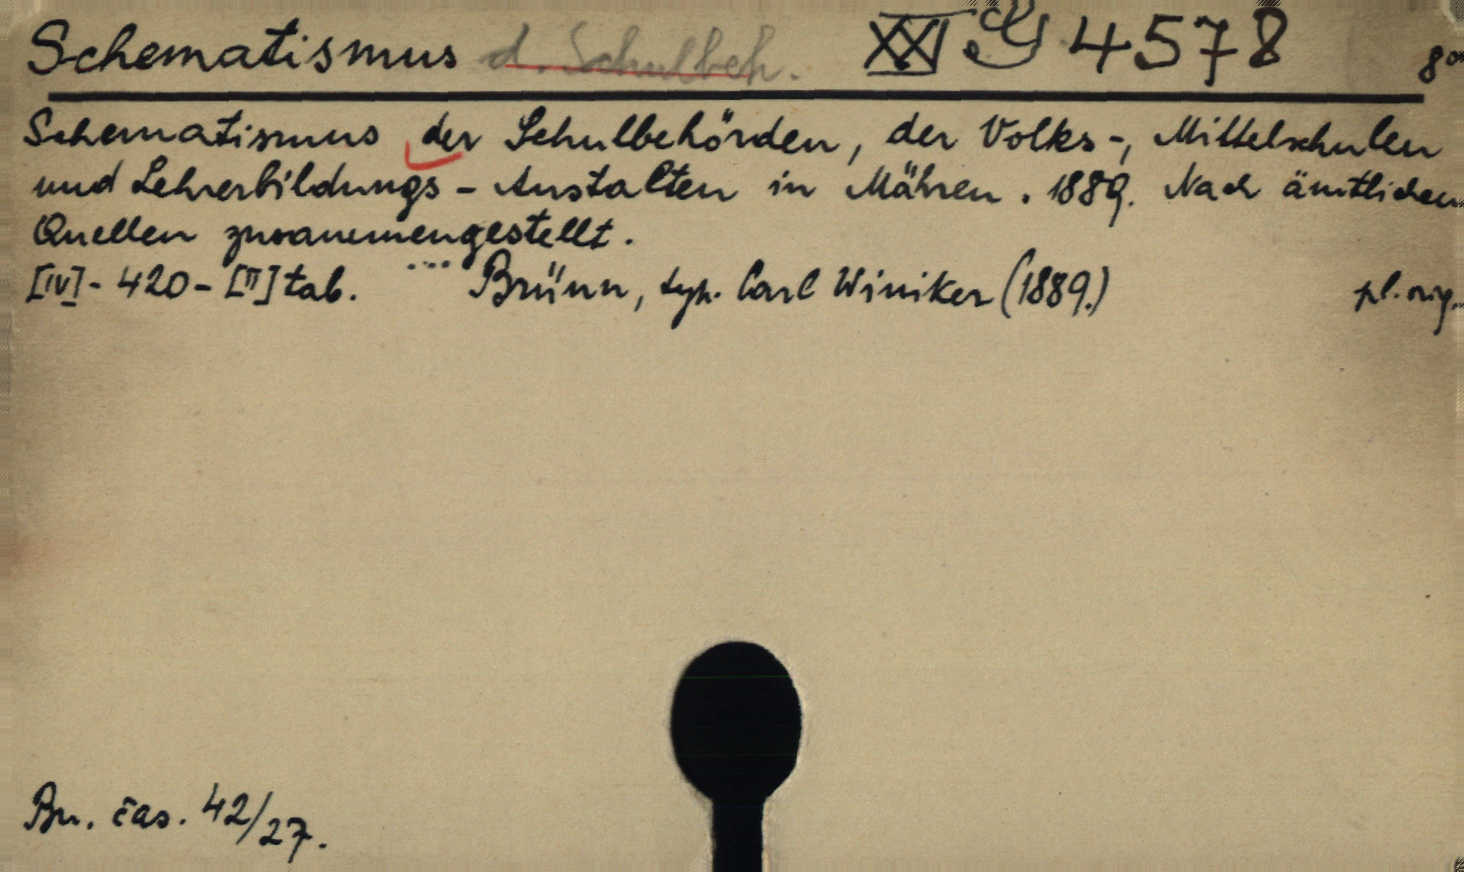 Schematismus d. Schulbeh. XXI G 4578 8°
Schematismus der Schulbehörden, der Volks-, Mittelschulen
und Lehrerbildungs-Anstalten in Mähren. 1889. Nach ämtlichen
Quellen zusammengestellt.
[IV]-420-[II] tab. ... Brünn, typ. Carl Winiker (1889.) pl. orig.
Bn. čas. 42/27.